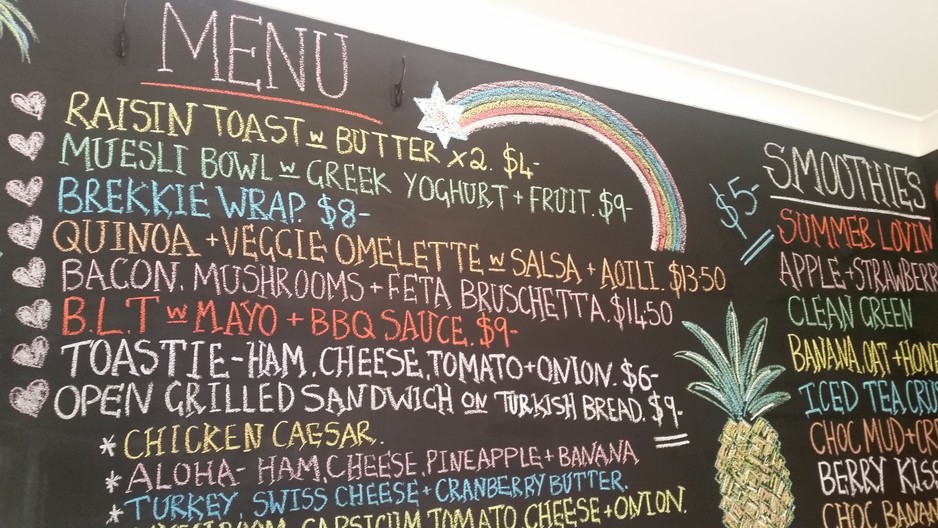 MENU
RAISIN TOAST w BUTTER x2. $4-
MUESLI BOWL w GREEK YOGHURT + FRUIT. $9-
BREKKIE WRAP. $8-
QUINOA + VEGGIE OMELETTE w SALSA + AOILI. $13.50
BACON, MUSHROOMS + FETA BRUSCHETTA. $14.50
B.L.T w MAYO + BBQ SAUCE. $9-
TOASTIE - HAM, CHEESE, TOMATO + ONION. $6-
OPEN GRILLED SANDWICH ON TURKISH BREAD. $9-
* CHICKEN CAESAR.
* ALOHA - HAM, CHEESE, PINEAPPLE + BANANA
* TURKEY, SWISS CHEESE + CRANBERRY BUTTER.
CAPSICUM, TOMATO, CHEESE + ONION.
SMOOTHIES
$5-
SUMMER LOVIN
APPLE + STRAWBERR
CLEAN GREEN
BANANA, OAT + HONE
ICED TEA CRUS
CHOC MUD + CRE
BERRY KISS
CHOC BANAN